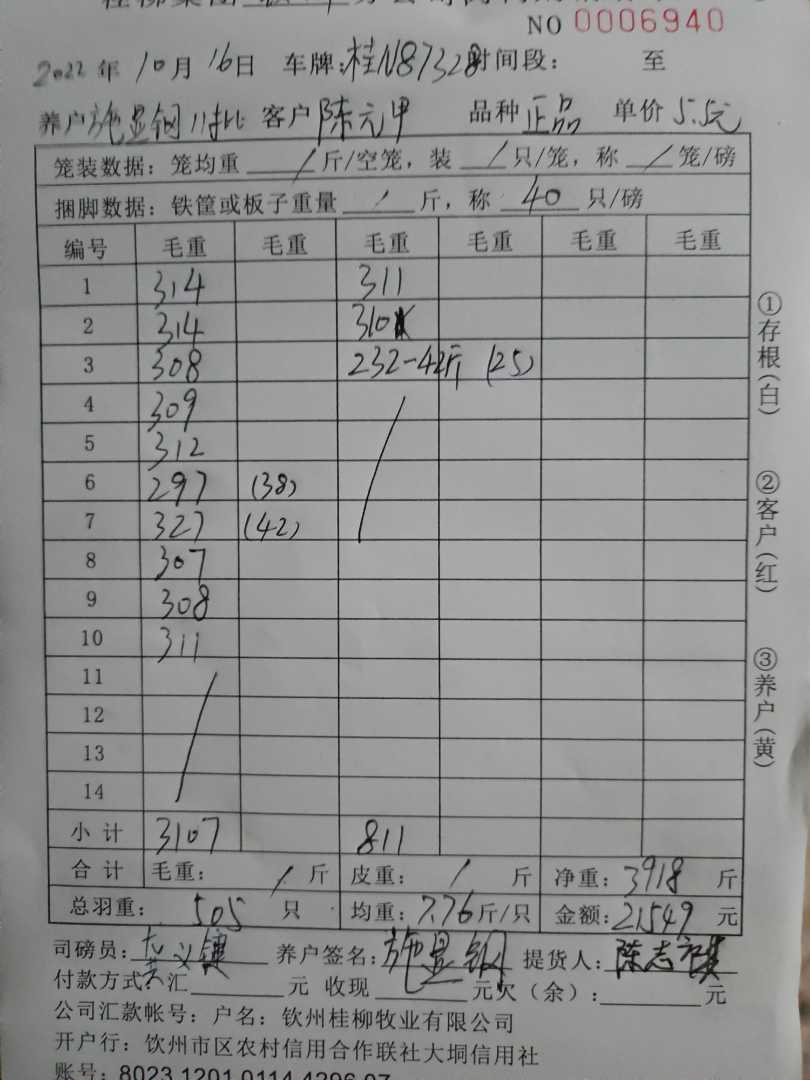 NO 0006940
2022年10月16日 车牌:桂N87328时间段: 至
养户施显钢11批 客户陈元甲 品种正品 单价5.5元
笼装数据:笼均重 / 斤/空笼,装 / 只/笼,称 / 笼/磅
捆脚数据:铁筐或板子重量 / 斤,称 40 只/磅
编号 毛重 毛重 毛重 毛重 毛重 毛重
1 314 311
2 314 310
3 308 232-42斤 (25)
4 309
5 312
6 297 (38)
7 327 (42)
8 307
9 308
10 311
11
12
13
14
小计 3107 811
合计 毛重: / 斤 皮重: / 斤 净重:3918 斤
总羽重: 505 只 均重:7.76斤/只 金额:21549 元
司磅员: 养户签名:施显钢 提货人:陈志
付款方式:汇 元 收现 元欠(余): 元
公司汇款帐号:户名:钦州桂柳牧业有限公司
开户行:钦州市区农村信用合作联社大垌信用社
账号:8023 1201 0114 4296 07
①存根(白)
②客户(红)
③养户(黄)